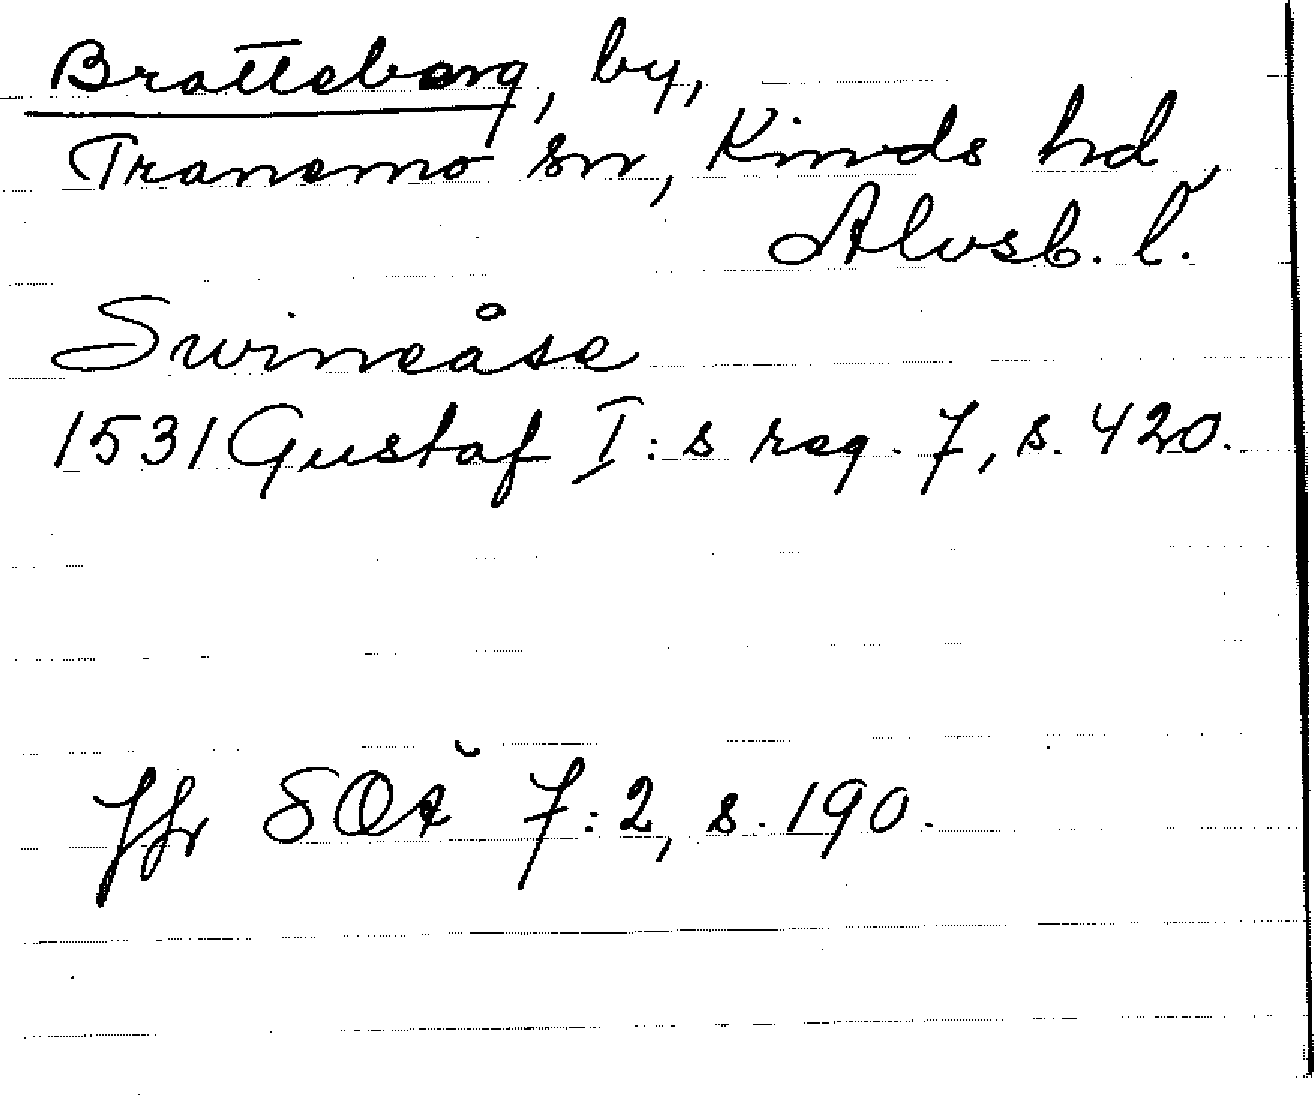 Bratteborg, by,
Tranemo sn, Kinds hd,
Älvsb. l.
Swineåse
1531 Gustaf I:s reg. 7, s. 420.
Jfr SOÄ 7:2, s. 190.